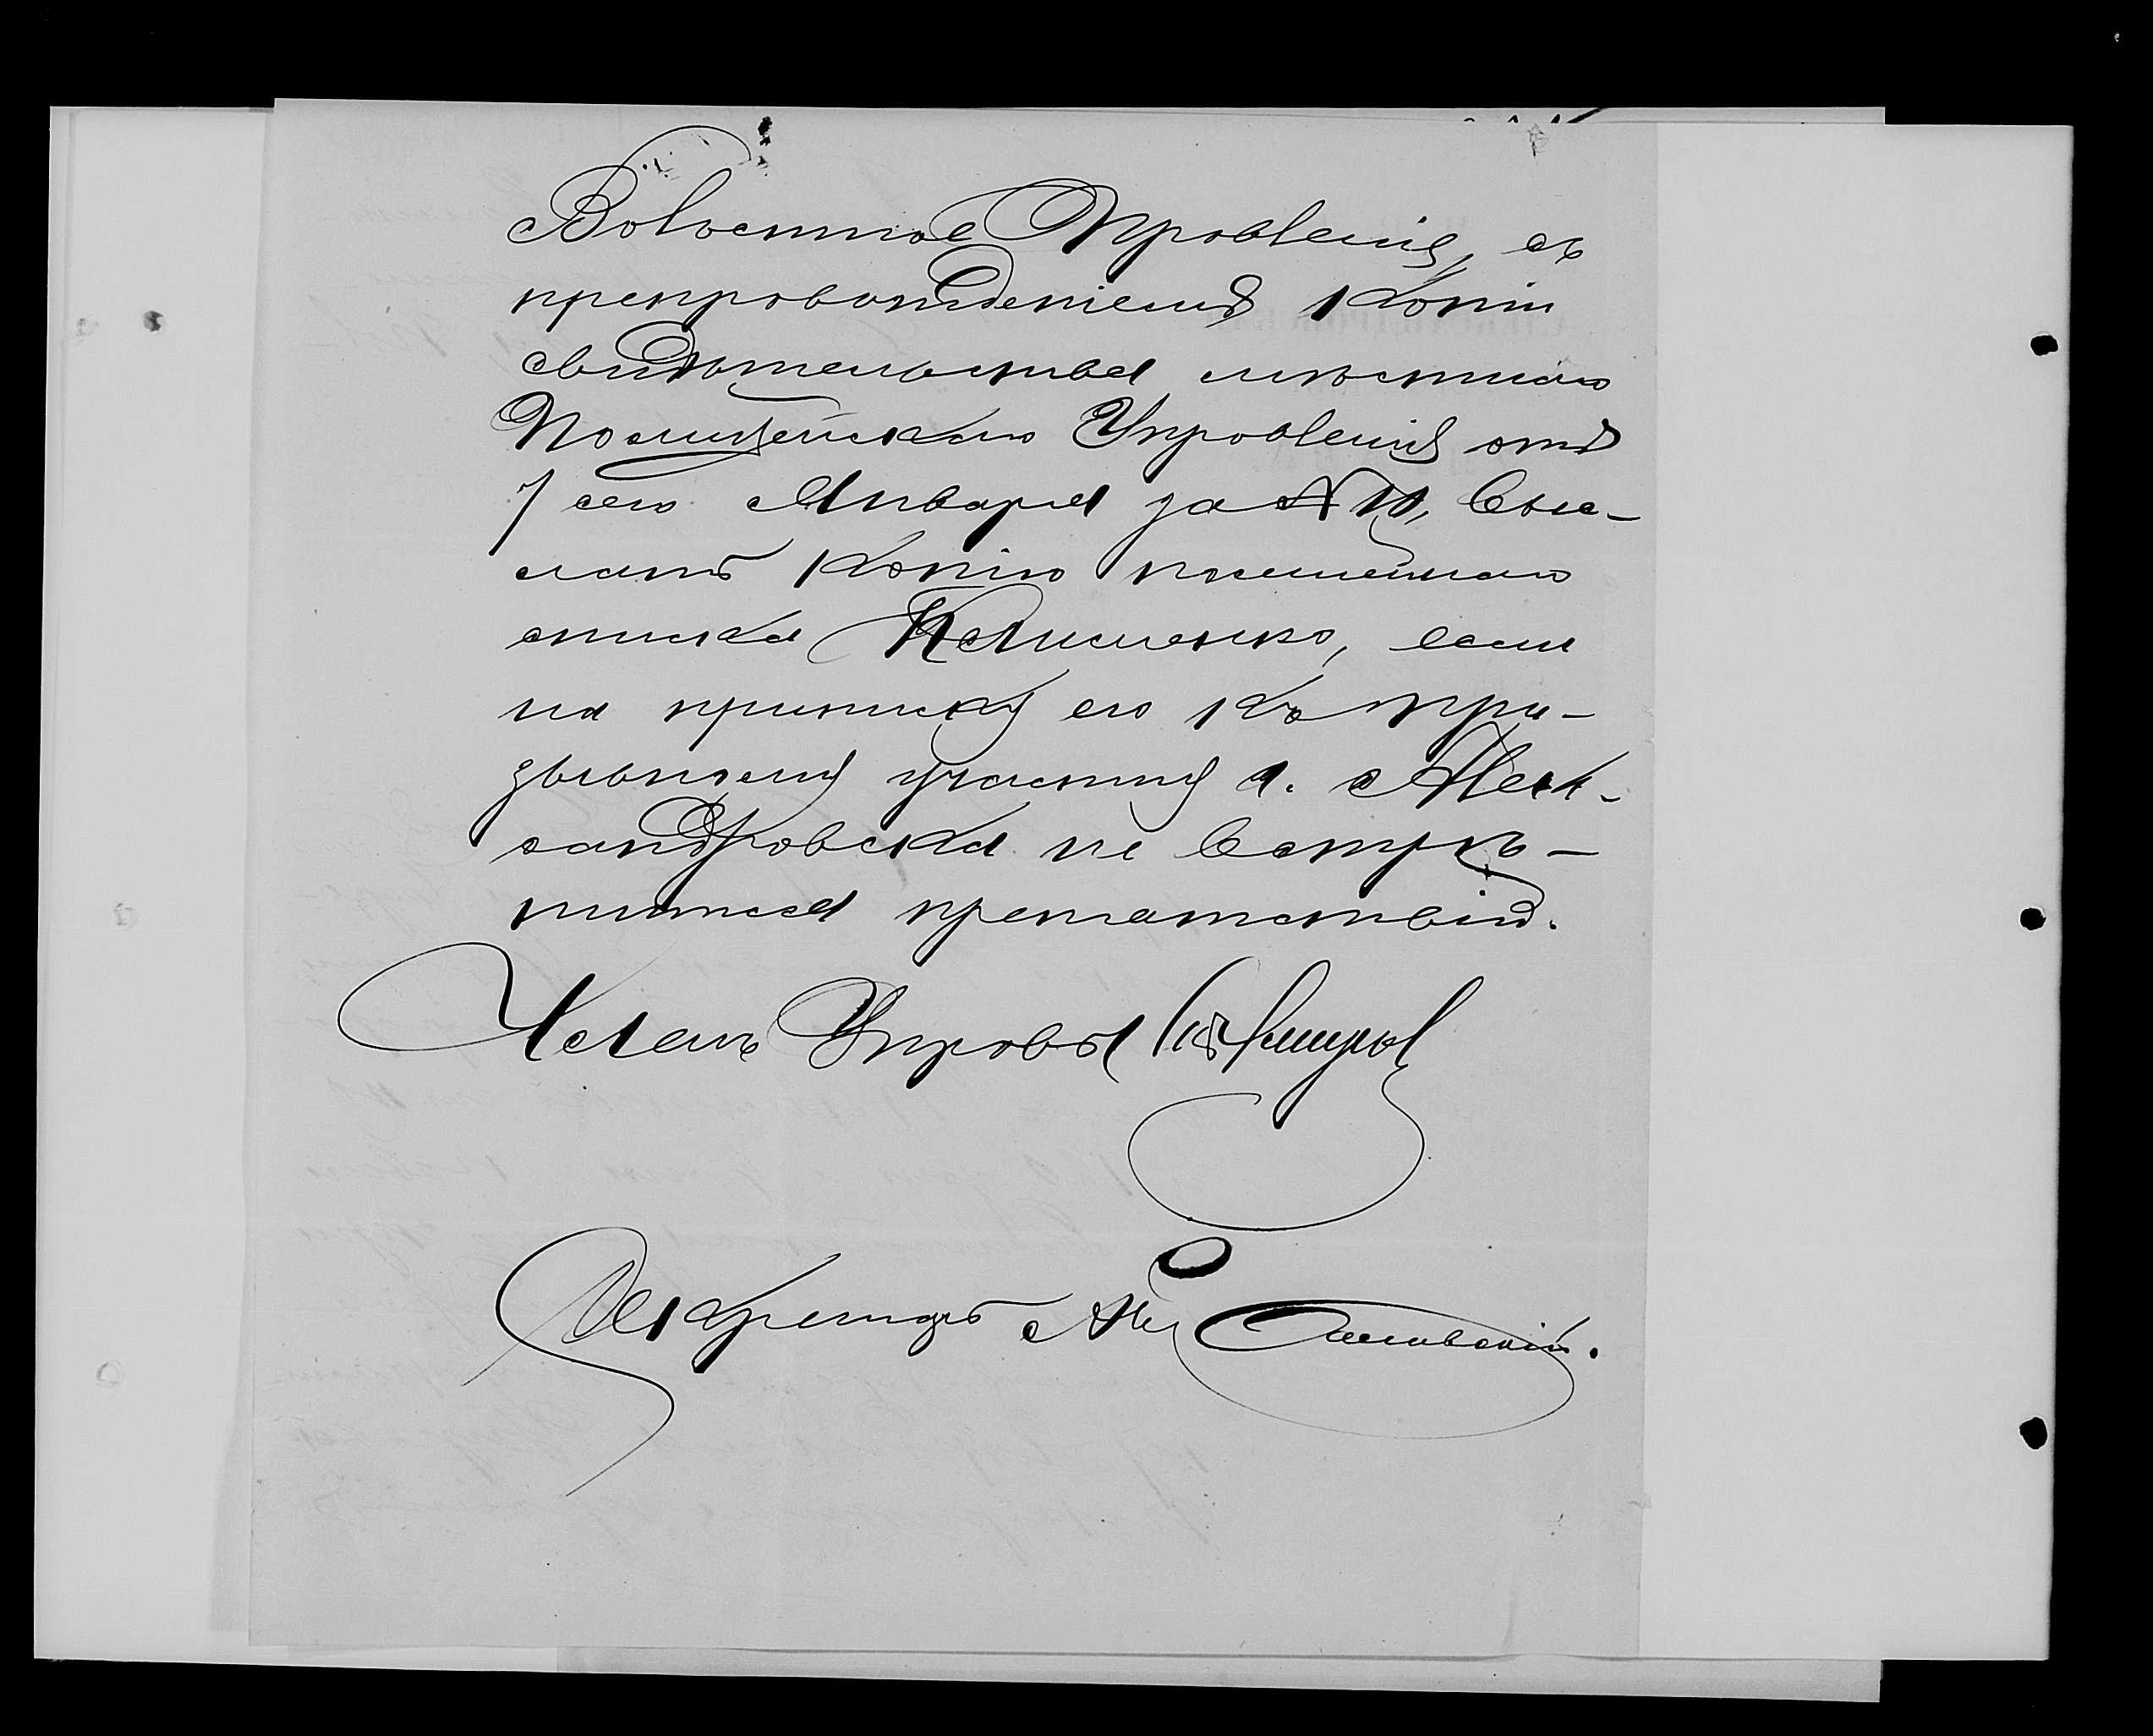 Волостное Правленіе, съ
препровожденіемъ копіи
свидѣтельства мѣстнаго
Полицейскаго Управленія отъ
7 сего Января за №, выс-
лать копію посемейнаго
списка, если
на приписку его къ при-
зывному участку г. Алек-
сандровска не встрѣ-
тится препятствій.
Членъ Управы
Секретарь